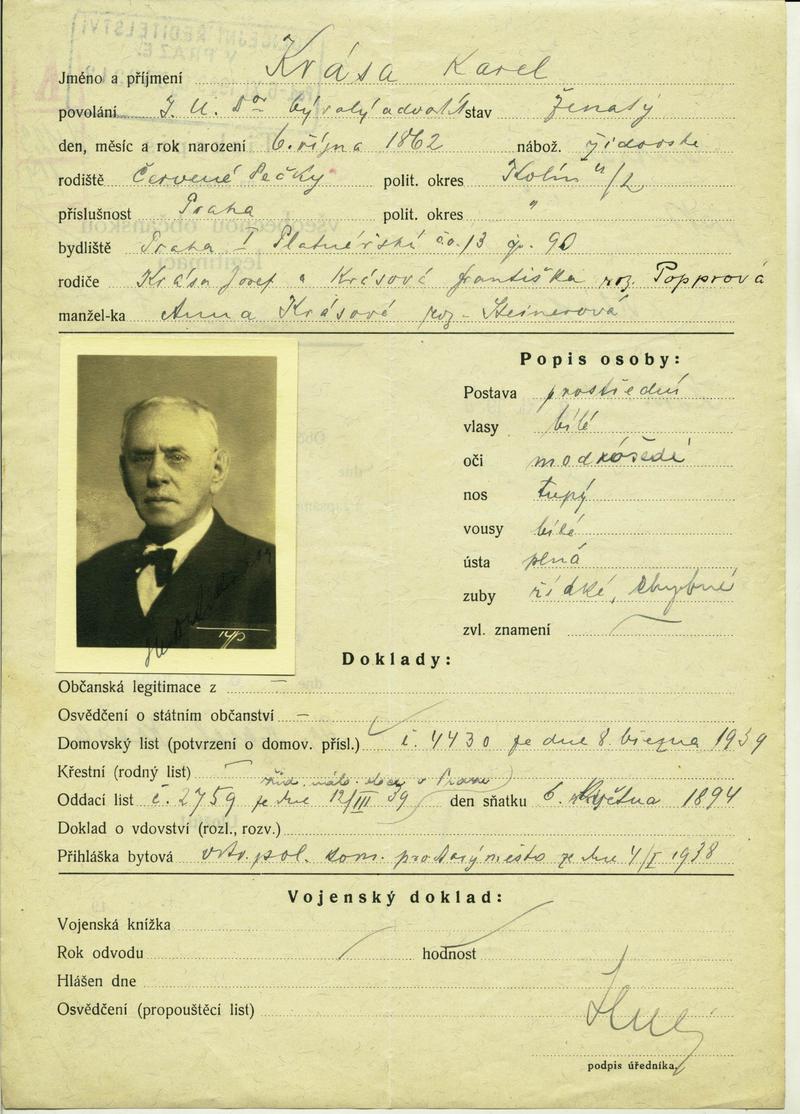 Jméno a příjmení Krása Karel
povolání J. U. Dor. bývalý advokát stav ženatý
den, měsíc a rok narození 6. října 1862 nábož. židovské
rodiště Červené Pečky polit. okres Kolín n/L
příslušnost Praha polit. okres "
bydliště Praha I Platnéřská čo. 13 čp. 90
rodiče Krása Josef a Krásová Františka roz. Popprová
manžel-ka Anna Krásová roz. Steinerová
Popis osoby:
Postava prostřední
vlasy bílé
oči modrošedé
nos tupý
vousy bílé
ústa plná
zuby řídké, chybné
zvl. znamení
Doklady:
Občanská legitimace z —
Osvědčení o státním občanství —
Domovský list (potvrzení o domov. přísl.) č. 4430 ze dne 8. března 1939
Křestní (rodný list) —
žid. nábož. obce v Praze)
Oddací list č. 2759 ze dne 12/III 39 den sňatku 6. května 1894
Doklad o vdovství (rozl., rozv.)
Přihláška bytová pol. kom. pro Starý město ze dne 4/I 1938
Vojenský doklad:
Vojenská knížka
Rok odvodu hodnost
Hlášen dne
Osvědčení (propouštěcí list)
podpis úředníka.